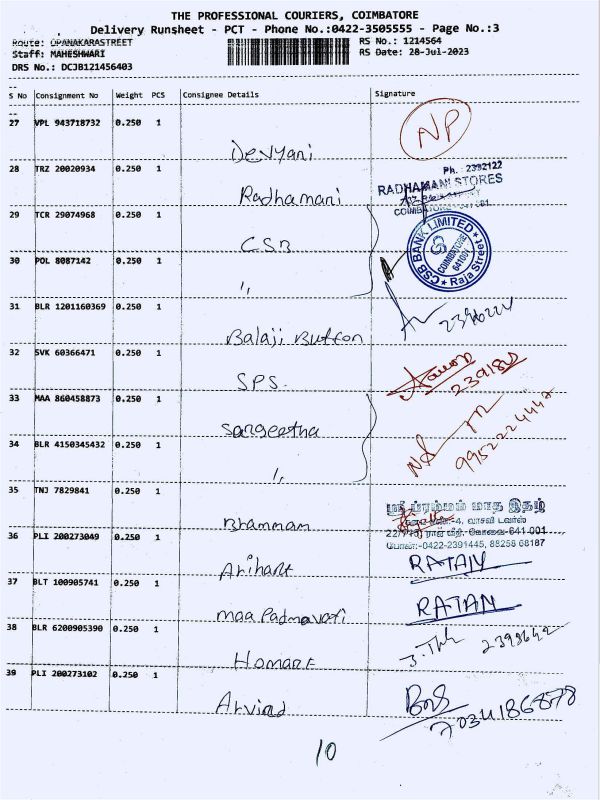 THE PROFESSIONAL COURIERS, COIMBATORE
Delivery Runsheet - PCT - Phone No:0422-3505555 - Page No.:3
Route: OPANAKARASTREET
RS No.: 1214564
Staff: MAHESHWARI
RS Date: 28-Jul-2023
DRS No.: DCJB121456403
S No Consignment No Weight PCS Consignee Details Signature
27 VPL 943718732 0.250 1
Devyani NP
28 TRZ 20020934 0.250 1
Radhamani
Ph. : 2392122
RADHAMANI STORES
COIMBATORE
29 TCR 29074968 0.250 1
CSB
CSB BANK LIMITED
COIMBATORE
641001
Raja Street
30 POL 8087142 0.250 1
"
31 BLR 1201160369 0.250 1
Balaji Button
32 SVK 60366471 0.250 1
SPS.
33 MAA 860458873 0.250 1
Sangeetha
9952224442
34 BLR 4150345432 0.250 1
"
35 TNJ 7829841 0.250 1
Bhammam
ஸ்ரீ ப்ரம்மம் மாத இதழ்
-4, வாசவி டவர்ஸ்
ராஜ வீதி, கோவை-641 001
போன்:-0422-2391445, 88258 68187
36 PLI 200273049 0.250 1
Arihant RATAN
37 BLT 100905741 0.250 1
maa Padmavati RATAN
38 BLR 6200905390 0.250 1
Homart
39 PLI 200273102 0.250 1
Arvind
10